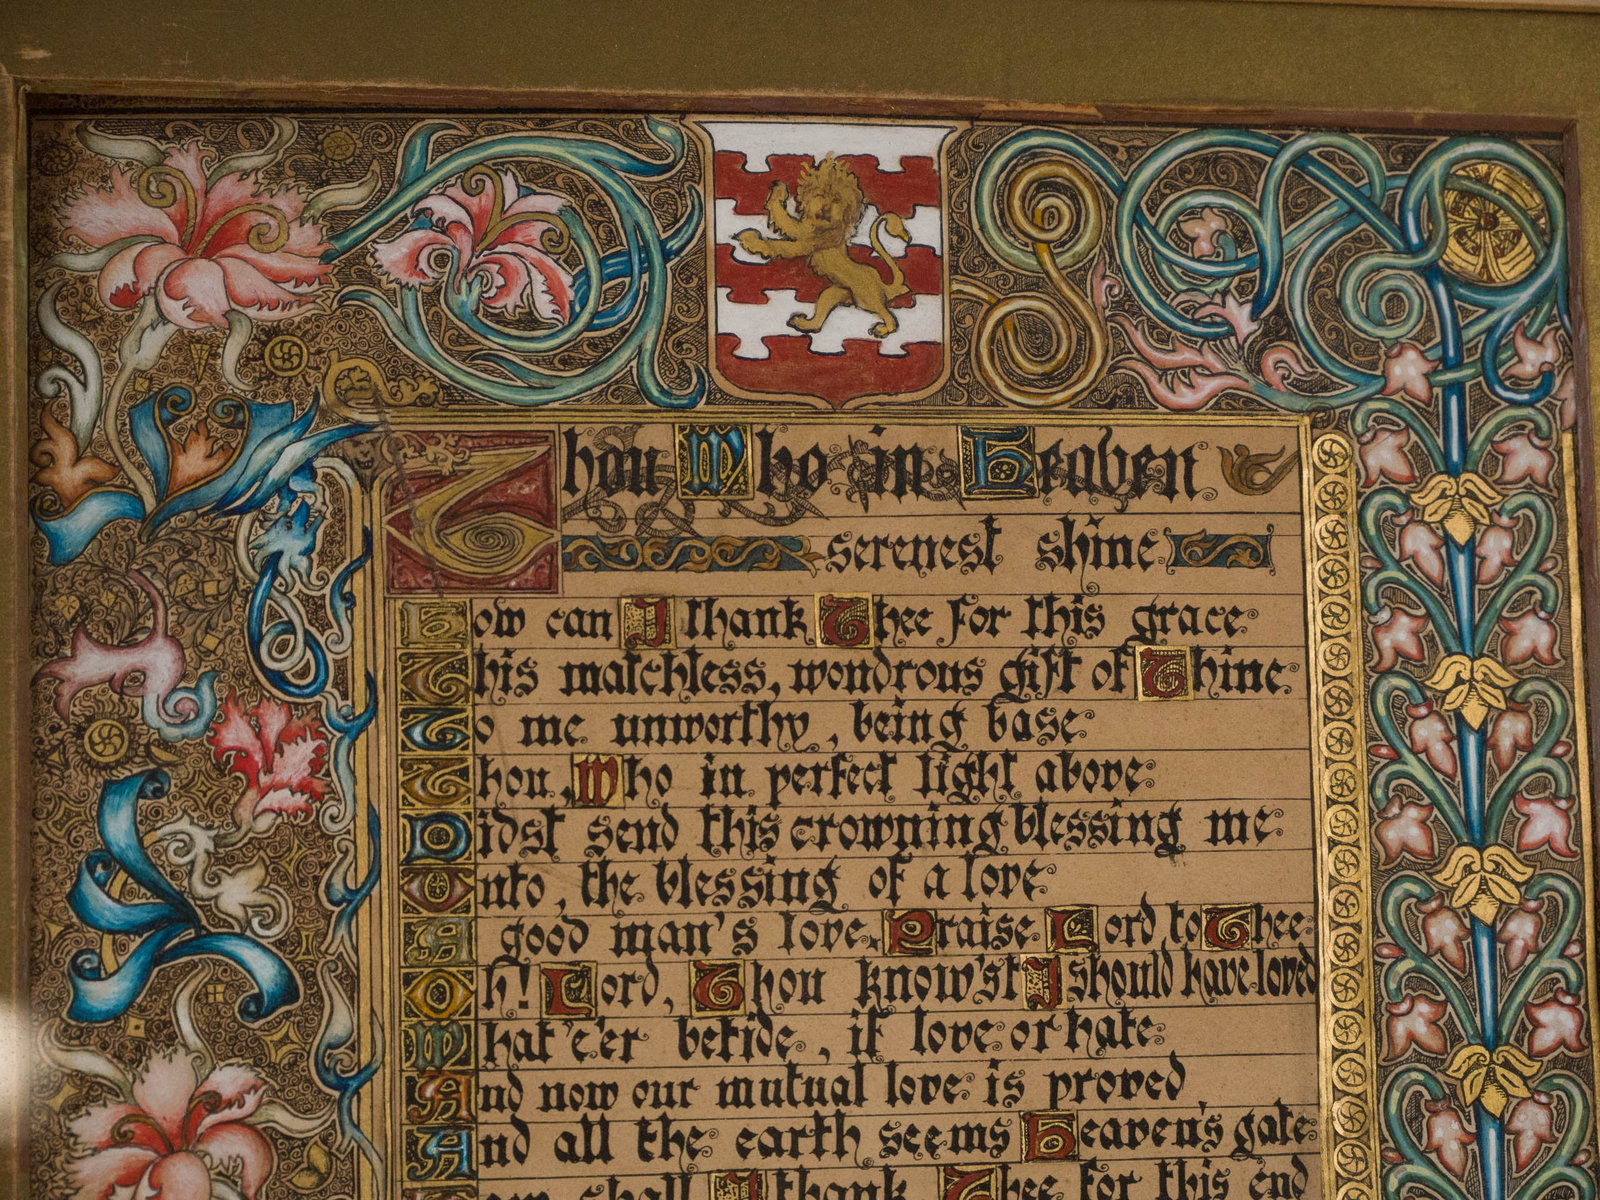 Thou Who in Heaven
serenest shine
How can I thank Thee for this grace
This matchless, wondrous gift of Thine
To me unworthy, being base
Thou, Who in perfect light above
Didst send this crowning blessing me
Unto, the blessing of a love
A good man's love, Praise Lord, to Thee
Oh! Lord, Thou know'st I should have loved
What e'er betide, if love or hate
And now our mutual love is proved
And all the earth seems Heaven's gate
How shall I thank Thee for this end